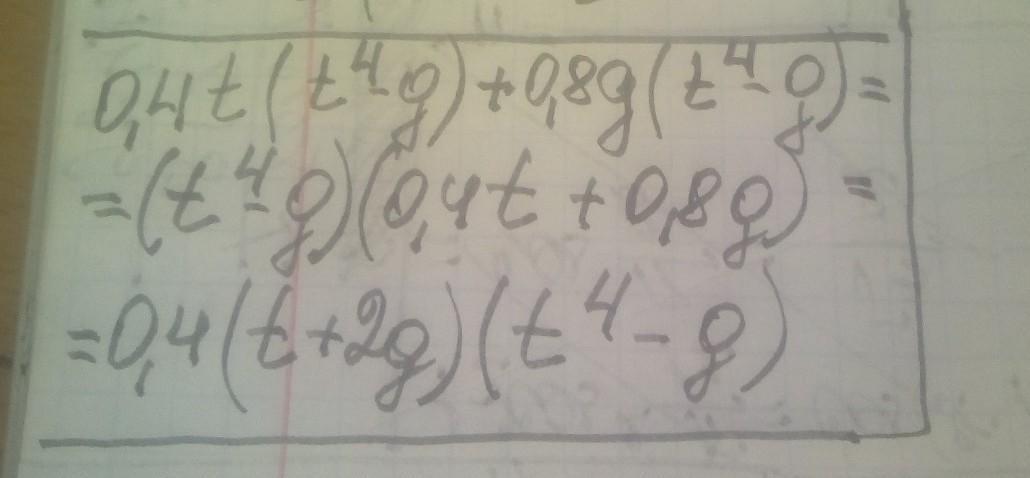 0,4t(t⁴-g)+0,8g(t⁴-g)=
=(t⁴-g)(0,4t+0,8g)=
=0,4(t+2g)(t⁴-g)